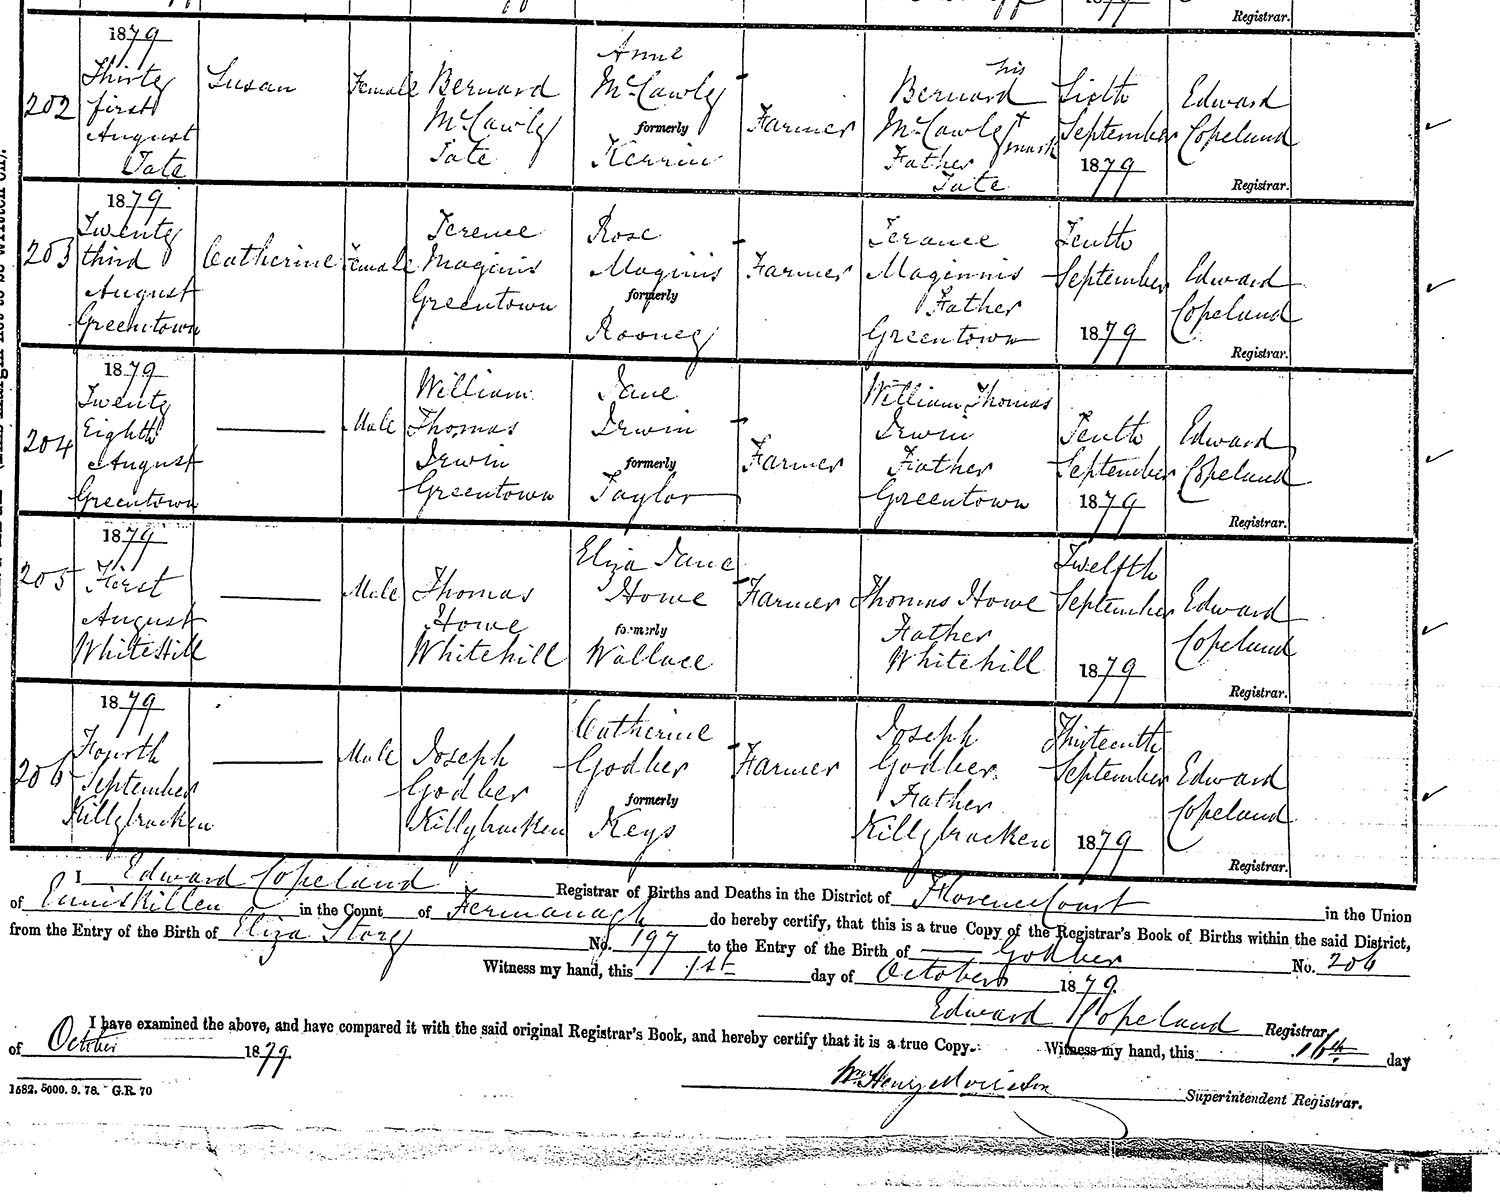 Registrar.
202
1879
Thirty
first
August
Tate
Susan
Female
Bernard
McCawley
Tate
Anne
McCawley
formerly
Kerrin
Farmer
Bernard his
McCawley + mark
Father
Tate
Sixth
September
1879
Edward
Copeland
Registrar.
203
1879
Twenty
third
August
Greentown
Catherine
Female
Terence
Maginis
Greentown
Rose
Maginis
formerly
Rooney
Farmer
Terance
Maginnis
Father
Greentown
Tenth
September
1879
Edward
Copeland
Registrar.
204
1879
Twenty
Eighth
August
Greentown
Male
William
Thomas
Irwin
Greentown
Jane
Irwin
formerly
Taylor
Farmer
William Thomas
Irwin
Father
Greentown
Tenth
September
1879
Edward
Copeland
Registrar.
205
1879
First
August
WhiteHill
Male
Thomas
Howe
Whitehill
Eliza Jane
Howe
formerly
Wallace
Farmer
Thomas Howe
Father
Whitehill
Twelfth
September
1879
Edward
Copeland
Registrar.
206
1879
Fourth
September
Killybracken
Male
Joseph
Godber
Killybracken
Catherine
Godber
formerly
Keys
Farmer
Joseph
Godber
Father
Killybracken
Thirteenth
September
1879
Edward
Copeland
Registrar.
I Edward Copeland Registrar of Births and Deaths in the District of Florence Court in the Union
of Enniskillen in the Count of Fermanagh do hereby certify, that this is a true Copy of the Registrar's Book of Births within the said District,
from the Entry of the Birth of Eliza Storey No. 197 to the Entry of the Birth of Godber No. 206
Witness my hand, this 1st day of October 1879.
Edward Copeland Registrar
I have examined the above, and have compared it with the said original Registrar's Book, and hereby certify that it is a true Copy. Witness my hand, this 16th day
of October 1879
Wm Henry Morrison
Superintendent Registrar.
1582. 5000. 9. 78. G.R. 70